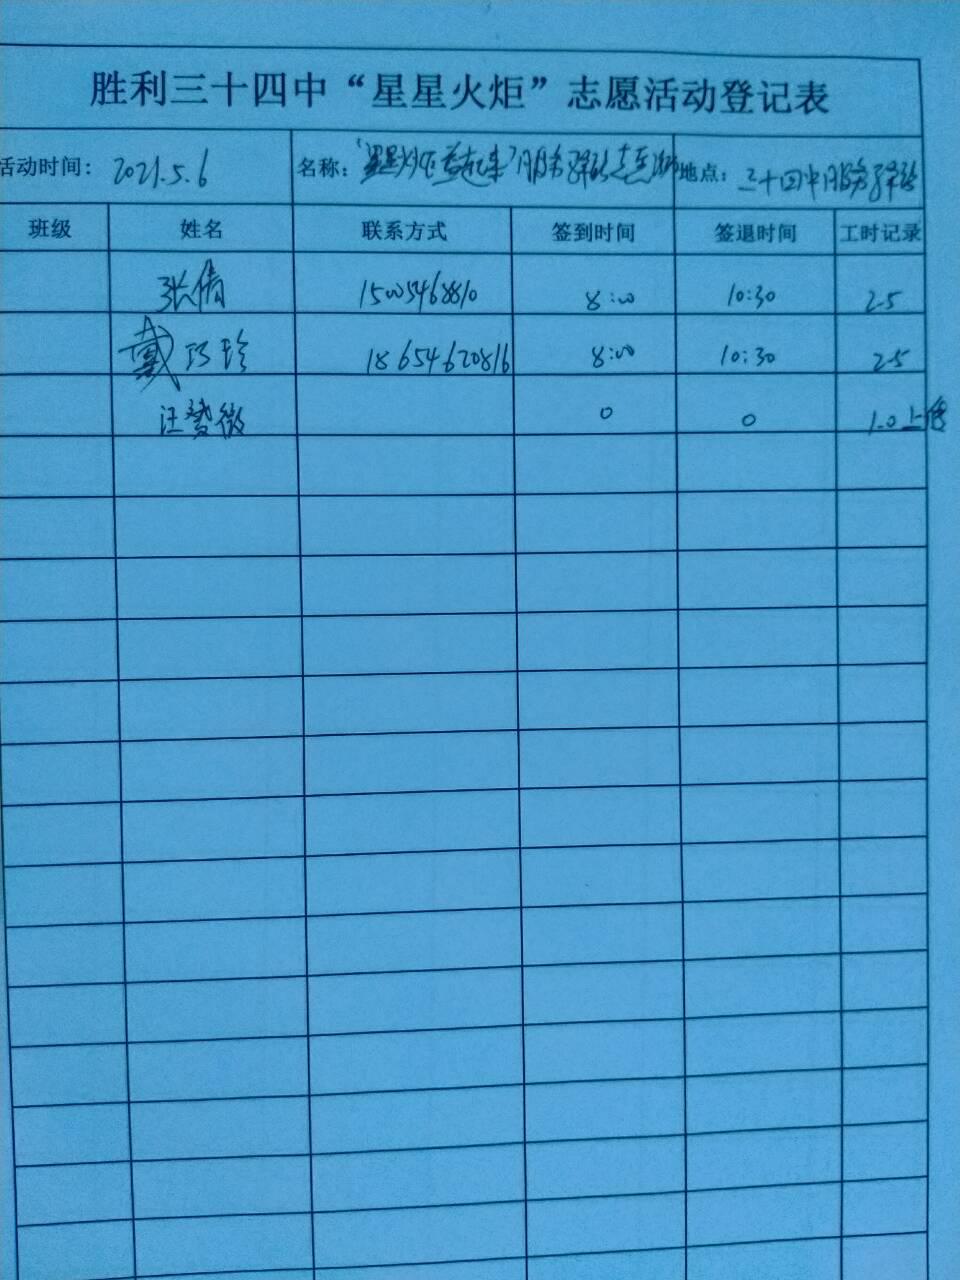 胜利三十四中“星星火炬”志愿活动登记表
活动时间: 2021.5.6 名称: 地点: 三十四中服务
班级 姓名 联系方式 签到时间 签退时间 工时记录
张倩 15005468810 8:00 10:30 2.5
戴巧玲 18654620816 8:00 10:30 2.5
汪 微 0 0 1.0上传